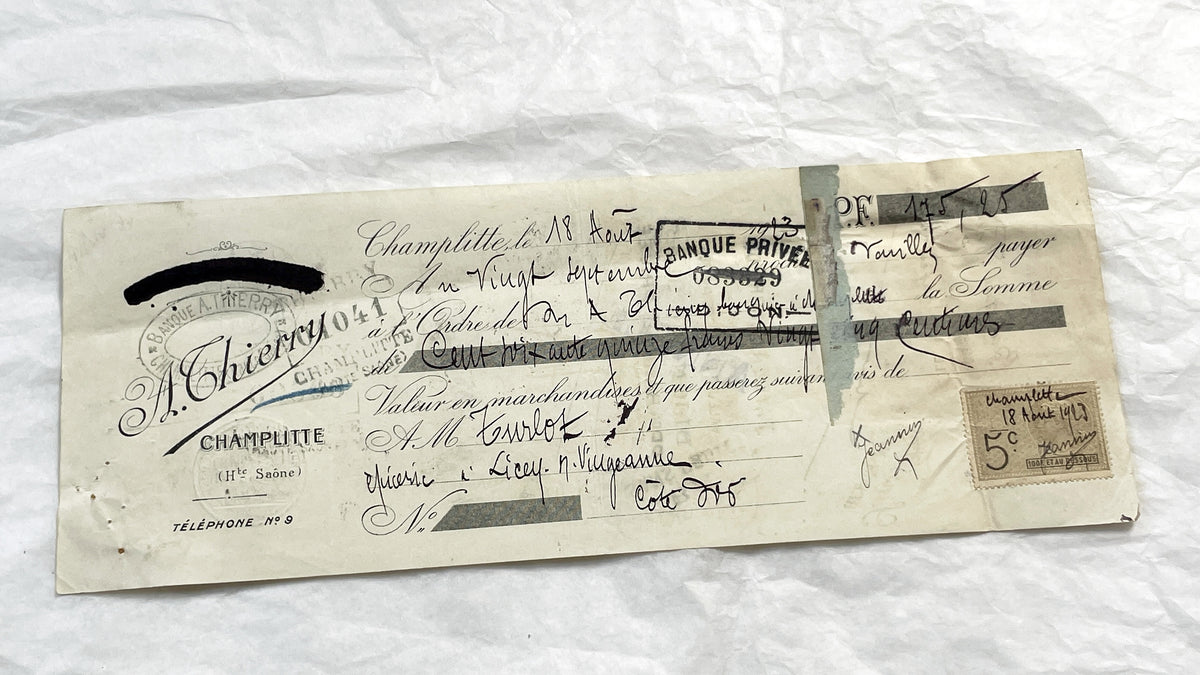 Champlitte, le 18 Août 1923
B.P.F. 175,25
Au Vingt septembre
Veuillez payer
à l'Ordre de la Somme
Cent soixante quinze francs Vingt cinq Centimes
Valeur en marchandises et que passerez suivant avis de
A M Turlot
épicerie à Licey s. Vingeanne
Côte d'Or
No
BANQUE A. THIERRY
A. Thierry
CHAMPLITTE
(Hte Saône)
TÉLÉPHONE No 9
1041
CHAMPLITTE
BANQUE PRIVÉE
083829
DIJON
Jeannin
Champlitte
18 Août 1923
5c
Jeannin
100F ET AU DESSOUS